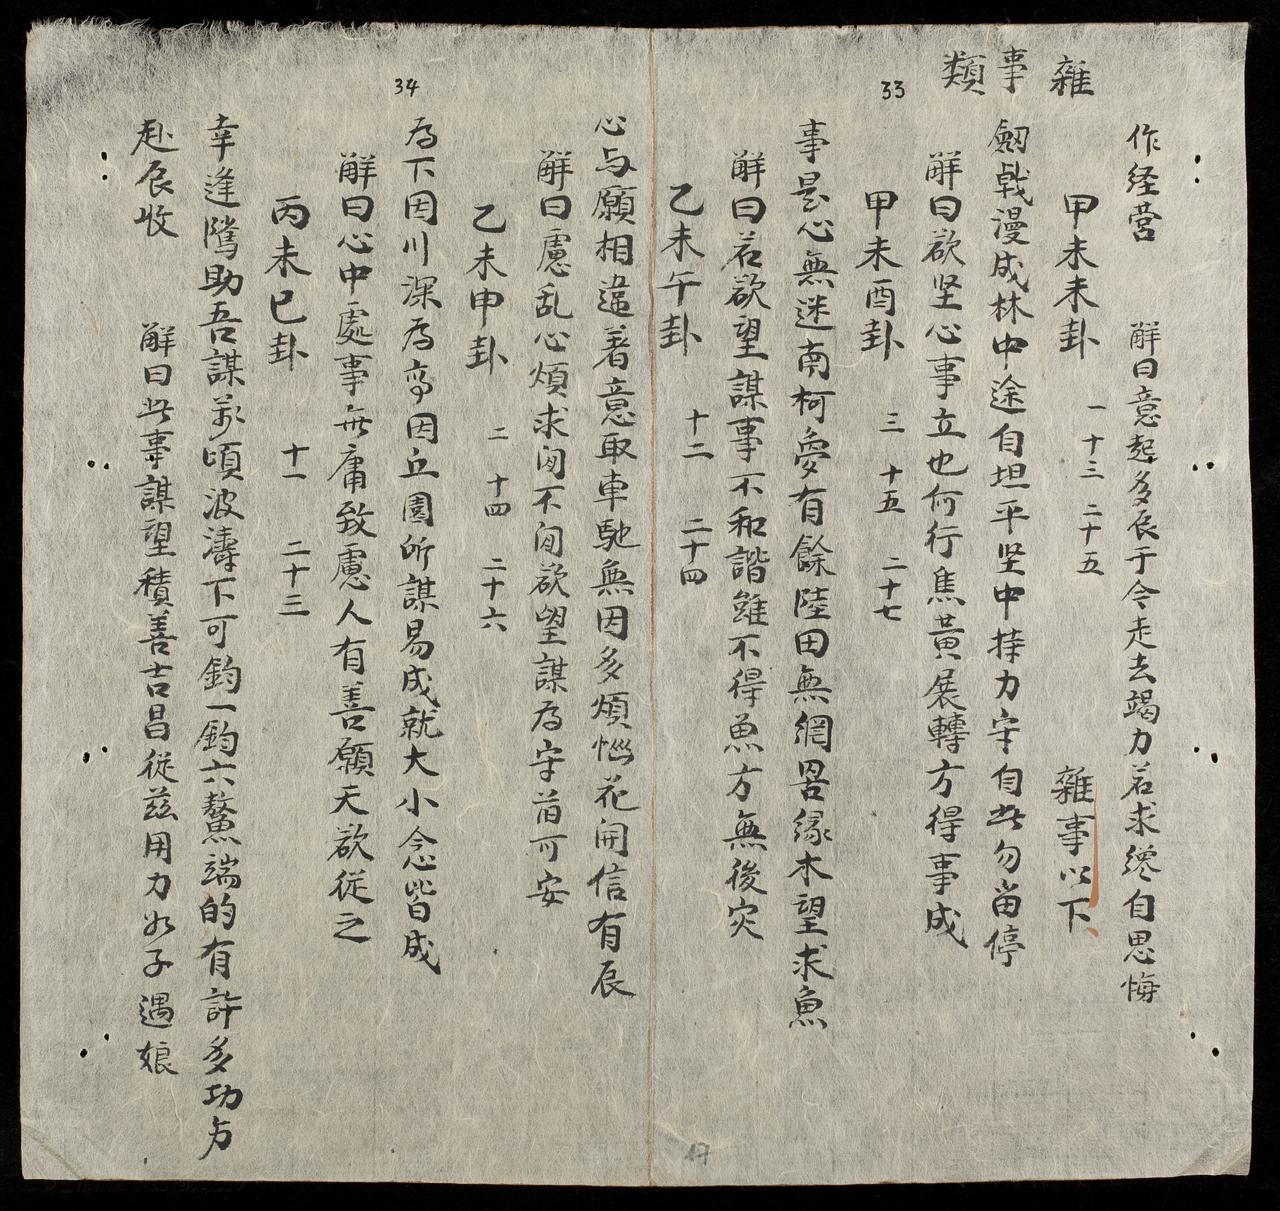 雜事類
33
作経营　解曰意起多辰于今走去竭力若求纔自思悔
甲未未卦　一　十三　二十五　雜事以下
劍戟漫成林中途自坦平坚中持力守自此勿畄停
解曰欲坚心事立也何行焦黃展轉方得事成
甲未酉卦　三　十五　二十七
事是心無迷南柯夢有餘陸田無綱罟缘木望求魚
解曰若欲望謀事不和諧雖不得魚方無後灾
乙未午卦　十二　二十四
34
心与願相違着意取車馳無因多煩惱花開信有辰
解曰慮乱心煩求闵不闵欲望謀為守首可安
乙未申卦　二　十四　二十六
為下因川深為高因丘園所謀易成就大小念皆成
解曰心中處事無庸致慮人有善願天欲從之
丙未巳卦　十一　二十三
幸逢隲助吾謀萬頃波濤下可釣一釣六鰲端的有許多功为
赴辰收　解曰此事謀望積善吉昌從茲用力如子遇娘
17